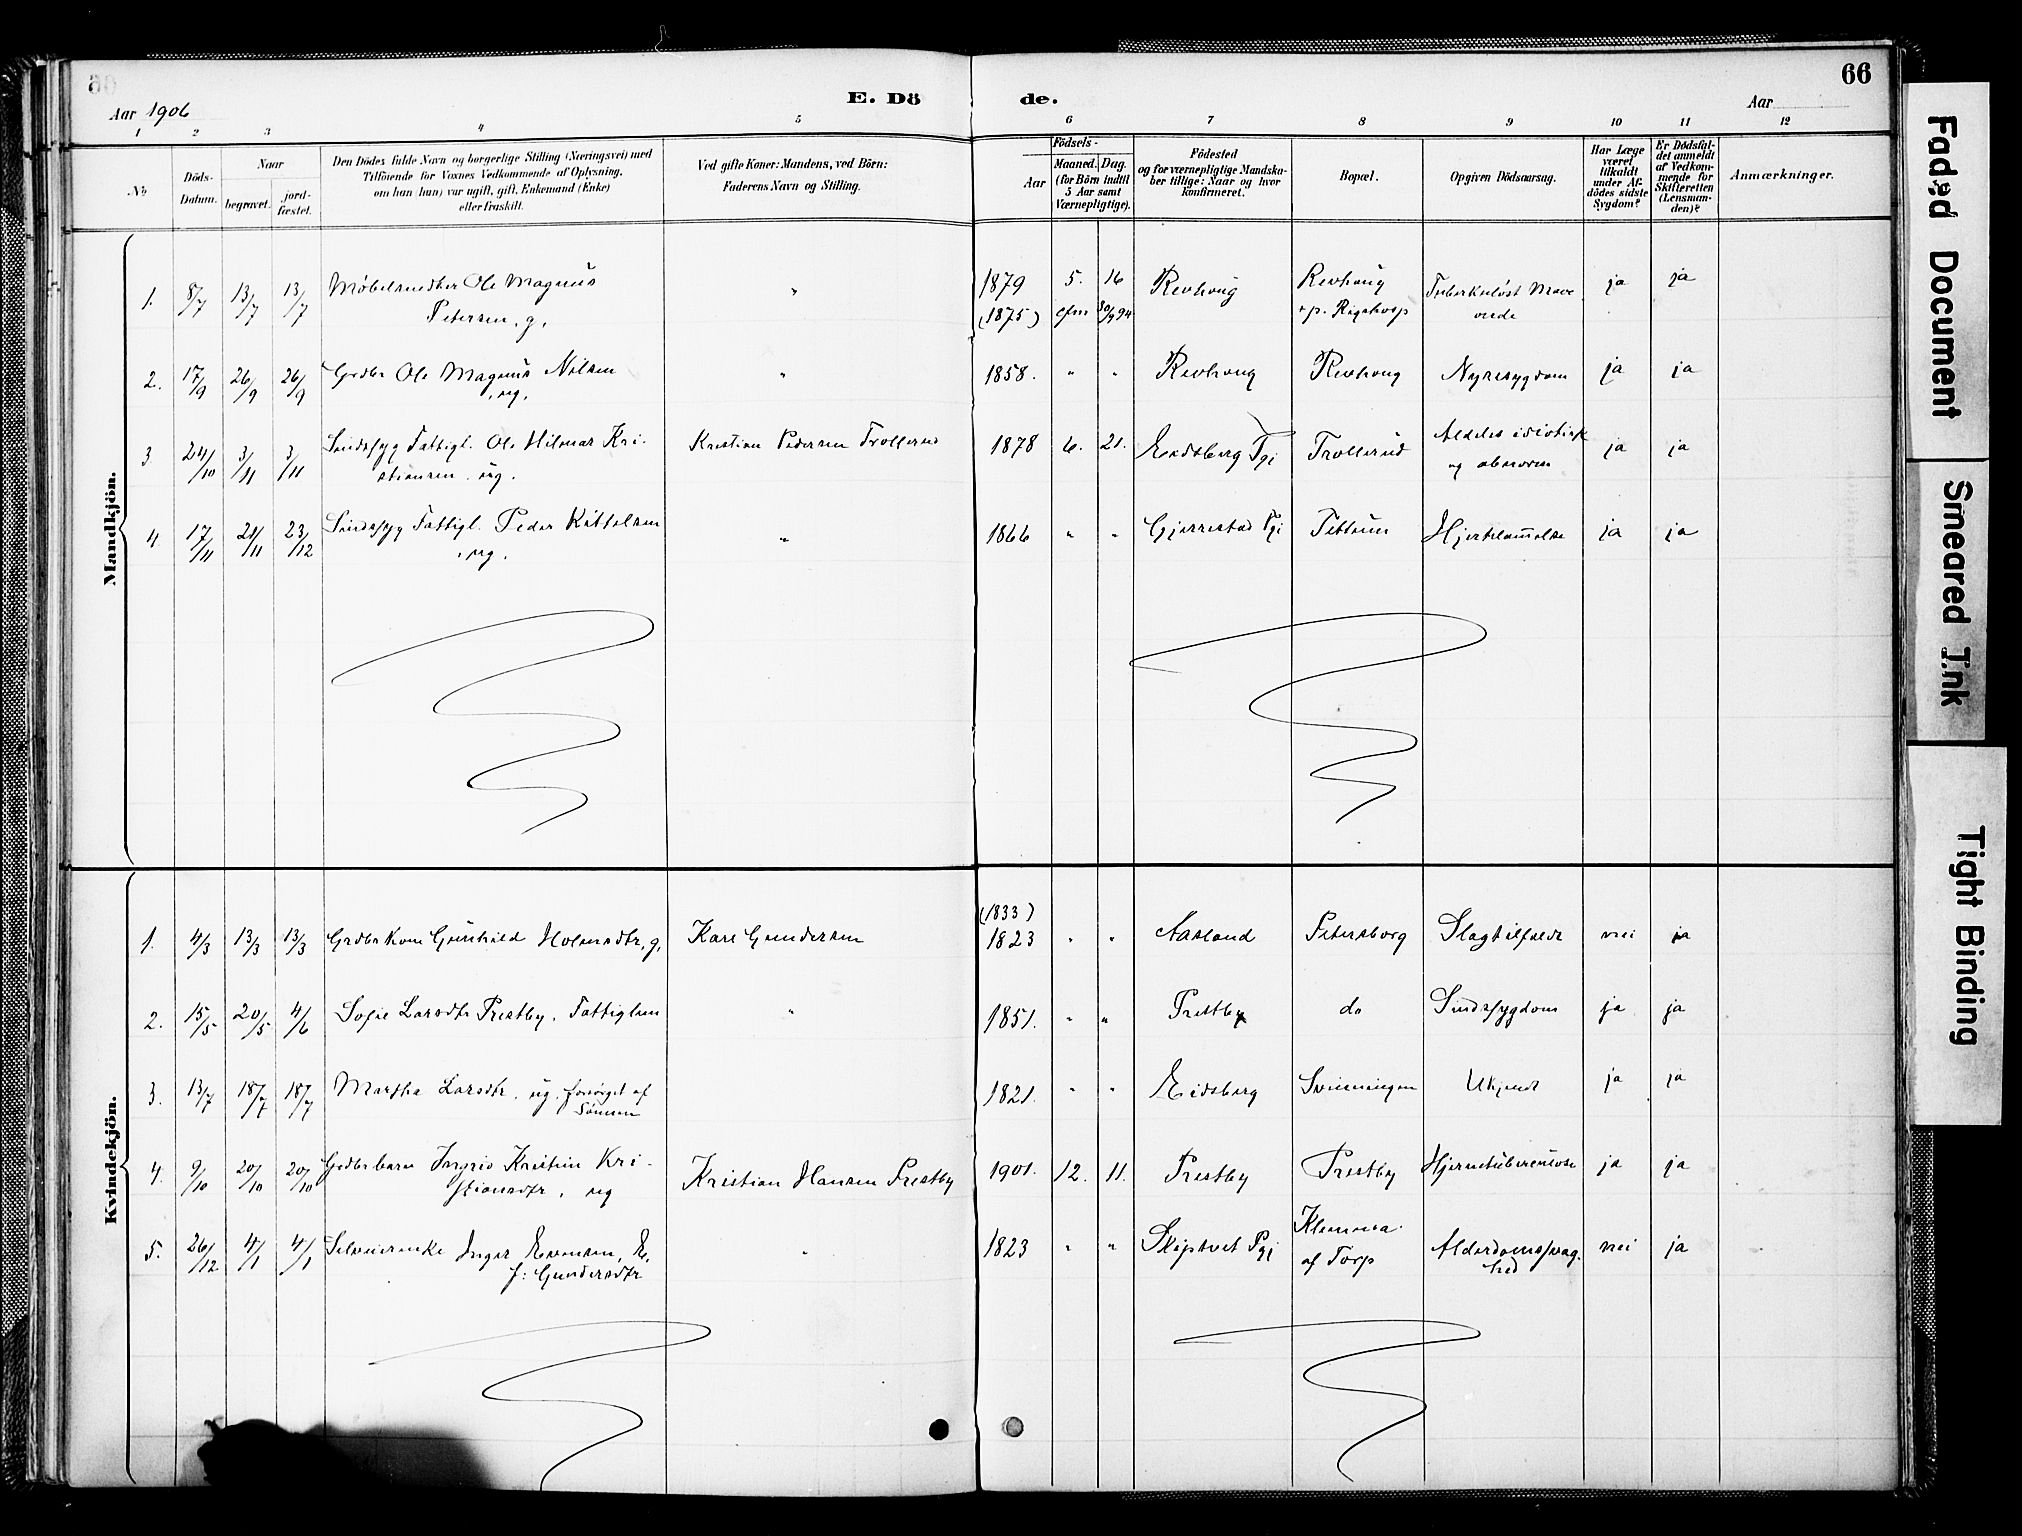 66
Aar 1906
E. Dö
de.
Aar
1 2 3 4 5 6 7 8 9 10 11 12
No
Döds-
Datum.
Naar
begravet.
jord-
fæstet.
Den Dödes fulde Navn og borgerlige Stilling (Næringsvei) med
Tilföiende for Voxnes Vedkommende af Oplysning,
om han (hun) var ugift, gift, Enkemand (Enke)
eller fraskilt.
Ved gifte Koner: Mandens, ved Börn:
Faderens Navn og Stilling.
Födsels-
Aar
Maaned. Dag.
(for Börn indtil
5 Aar samt
Værnepligtige).
Födested
og for værnepligtige Mandska-
ber tillige: Naar og hvor
konfirmeret.
Bopæl.
Opgiven Dödsaarsag.
Har Læge
været
tilkaldt
under Af-
dödes sidste
Sygdom?
Er Dödsfal-
det anmeldt
af Vedkom-
mende for
Skifteretten
(Lensman-
den)?
Anmærkninger.
Mandkjön.
1. 8/7 13/7 13/7 Møbelsnedker Ole Magnus " 1879 5. 16 Revhoug Revhoug Tuberkuløst Mave ja ja
Petersen, g, (1875) cfm 30/9 94 + p. Rigshosp onde
2. 17/9 26/9 26/9 Grdbr Ole Magnus Nilsen " 1858. " " Revhoug Revhoug Nyresygdom ja ja
, ug,
3 24/10 3/11 3/11 Sindssyg Fattigl. Ole Hilmar Kri- Kristian Pedersen Trollerud 1878 6. 21. Eidsberg Pgj Trollerud Aldeles idiotisk ja ja
stiansen, ug. og abnorm
4. 17/11 21/11 23/12 Sindssyg Fattigl. Peder Kittelsen " 1866 " " Gjerrestad Pgj Hjertelammelse ja ja
, ug.
Kvindekjön.
(1833)
1. 4/3 13/3 13/3 Grdbrkone Gunhild Holmsdtr, g, Kare Gundersen 1823 " " Aasland Petersborg Slagtilfælde nei ja
2. 15/5 20/5 4/6 Sofie Larsdtr Prestby, Fattiglem " 1851. " " Prestby do Sindssygdom ja ja
3. 13/7 18/7 18/7 Martha Larsdtr, ug, forsörget af 1821. " " Eidsberg Svenningen Ukjendt ja ja
Sönnen
4. 9/10 20/10 20/10 Grdbrbarn Ingrid Kristine Kri- Kristian Hansen Prestby 1901. 12. 11. Prestby Prestby Hjernetuberculose ja ja
stiansdtr, ug
5. 26/12 4/1 4/1 Selveierenke Inger Evensen, E, " 1823 " " Skiptvet Pgj Klemma Alderdomssvag- nei ja
f: Gundersdtr af Torp hed
Faded Document
Smeared Ink
Tight Binding